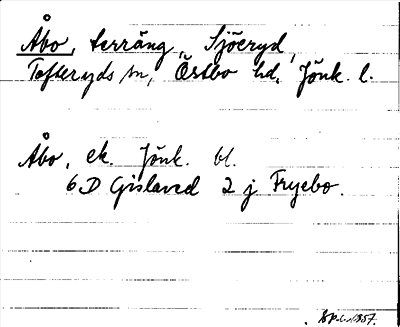 Åbo, terräng, Sjöeryd,
Tofteryds sn, Östbo hd, Jönk. l.
Åbo, ek. Jönk. bl.
6 D Gislaved 2 j Fryebo.